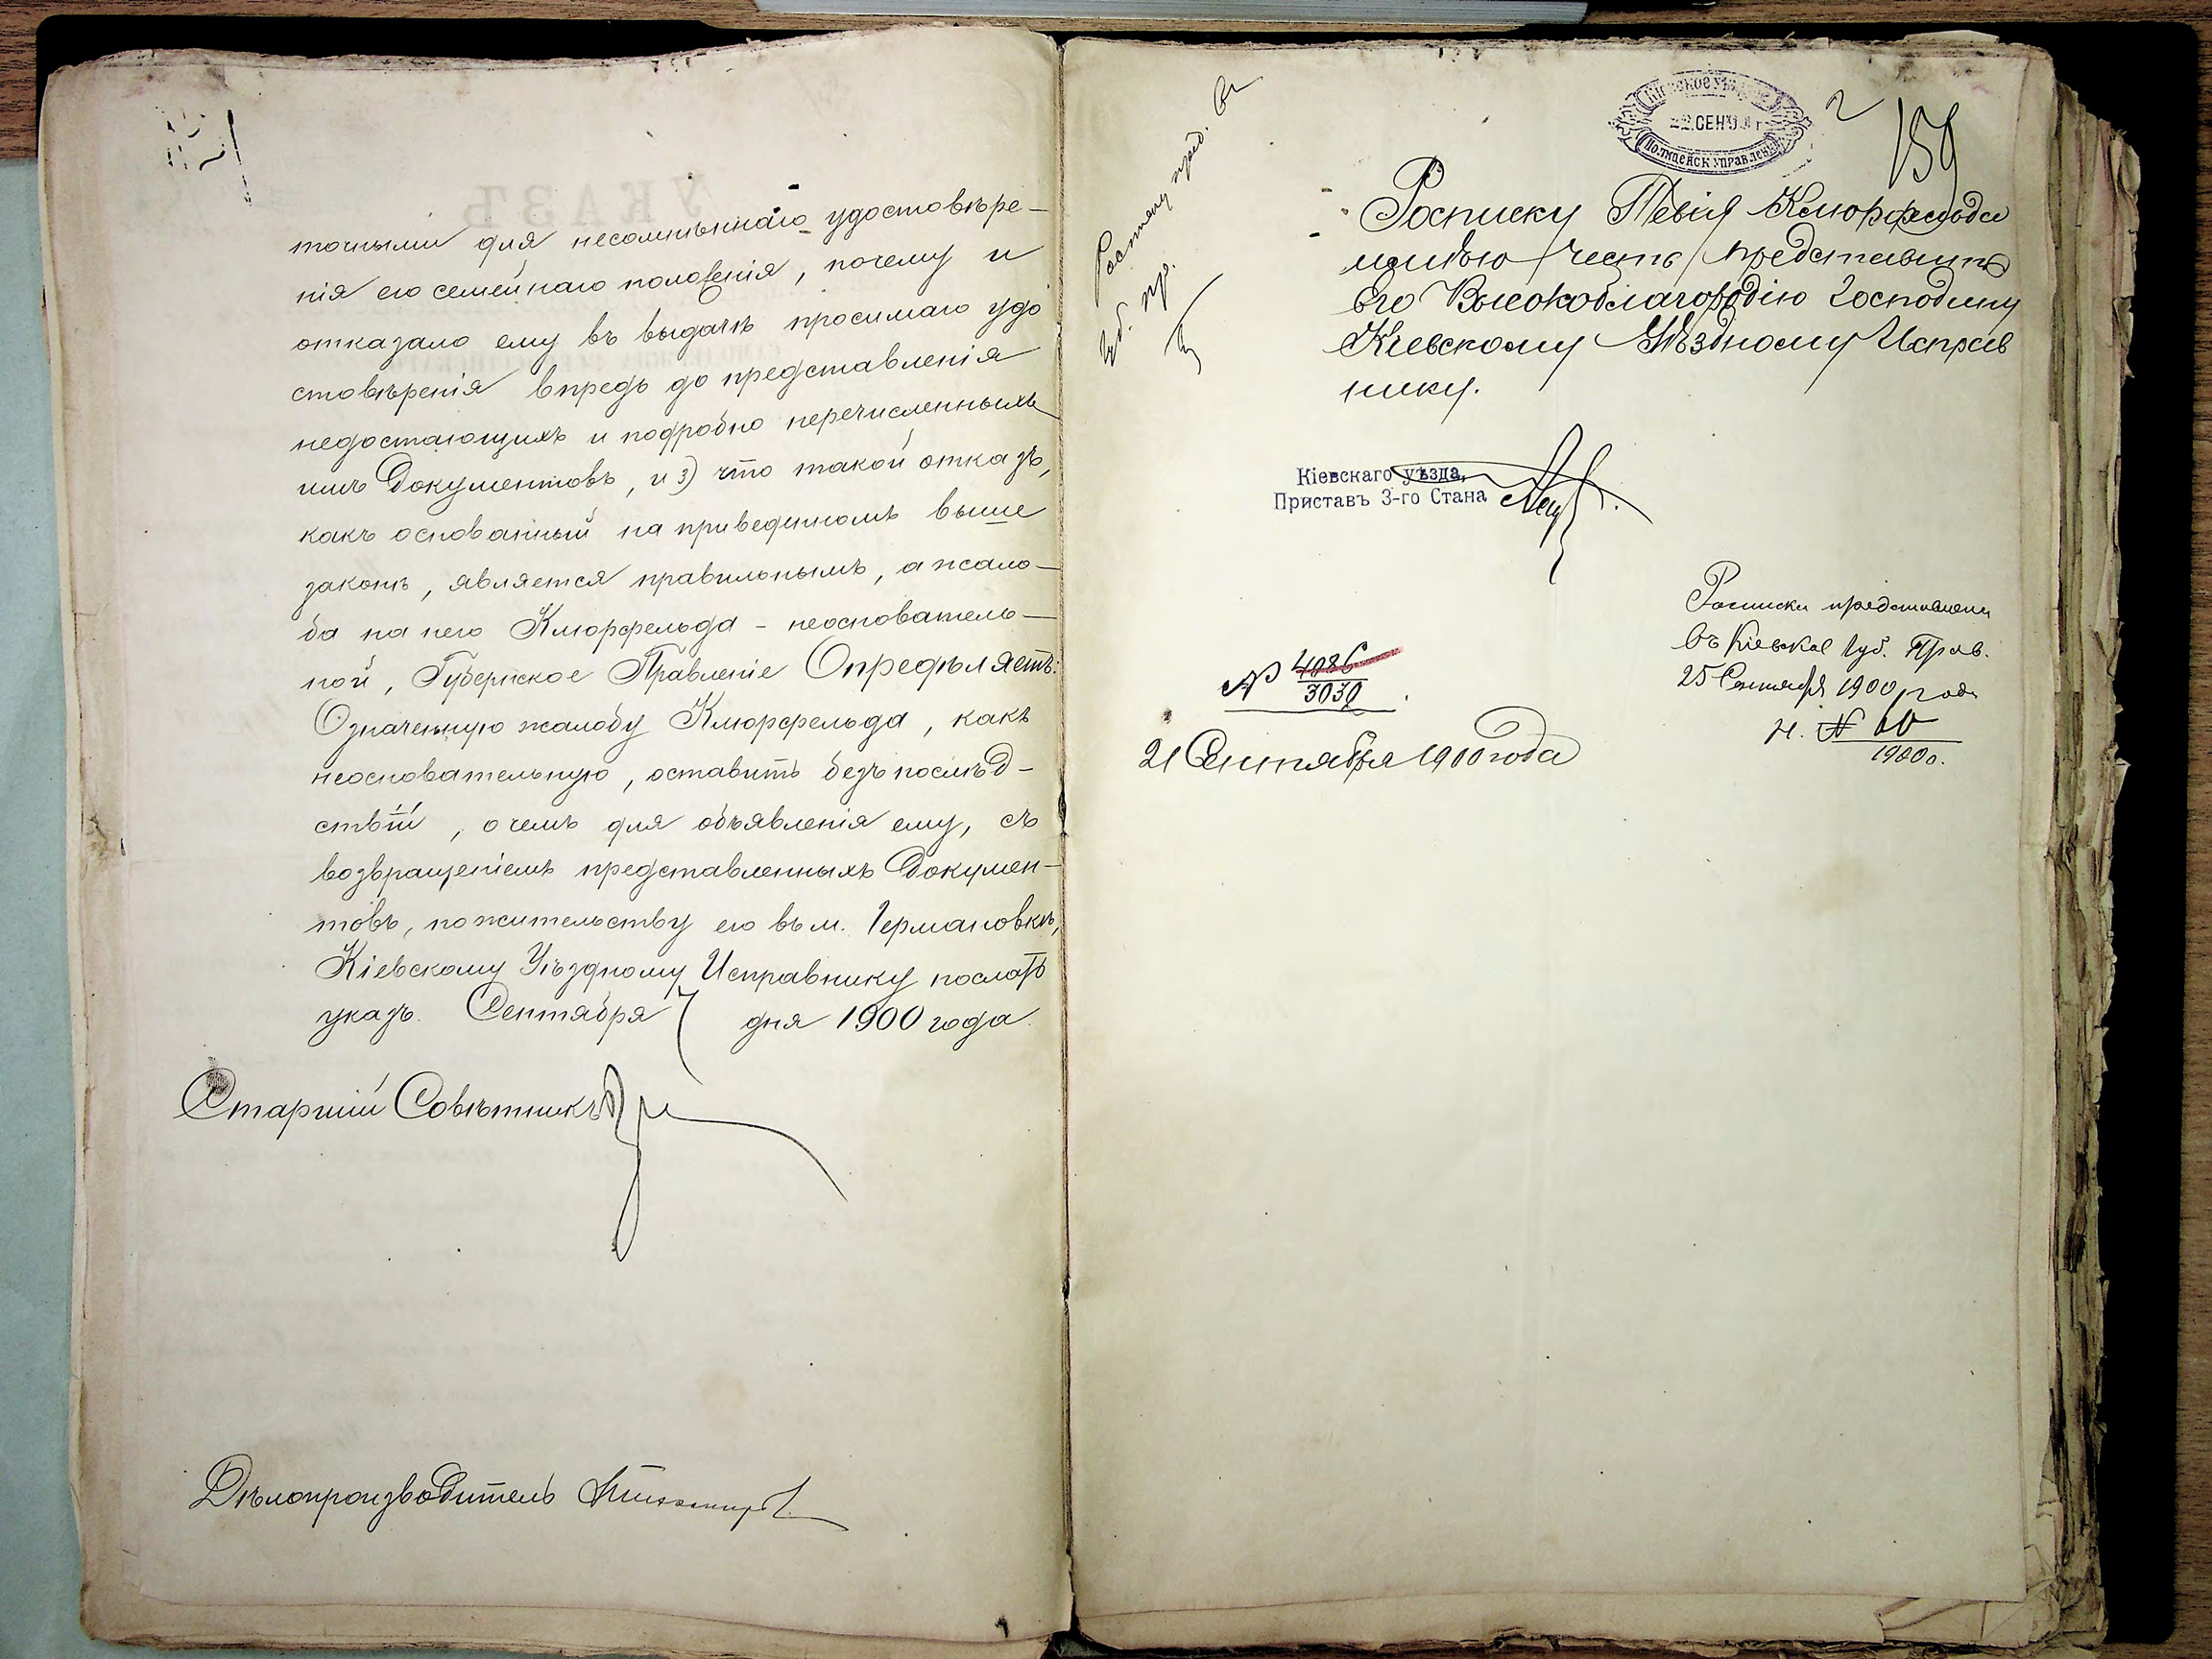 точными для несомнѣннаго удостовѣре-
нія его семейнаго положенія, почему и
отказало ему въ выдачѣ просимаго удо
стовѣренія впредь до представленія
недостающихъ и подробно перечисленныхъ
имъ документовъ, и 3) что такой отказъ,
какъ основанный на приведенномъ выше
законѣ, является правильнымъ, а жало-
ба на него Клюрфельда - неоснователь-
ной, Губернское Правленіе Опредѣляетъ:
Означенную жалобу Клюрфельда, какъ
неосновательную, оставить безъ послѣд-
ствій, о чемъ для объявленія ему, съ
возвращеніемъ представленныхъ докумен-
товъ, по жительству его въ м. Германовкѣ,
Кіевскому Уѣздному Исправнику послать
указъ. Сентября 7 дня 1900 года.
Старшій Совѣтникъ
Дѣлопроизводитель
Кіевское Уѣздное
22 СЕН
Полицейск управленіе
2
159
Росписку пред. въ
Губ. пр.
Росписку Тевія Клюрфельда
имѣю честь представить
Его Высокоблагородію Господину
Кіевскому Уѣздному Исправ
нику.
Кіевскаго уѣзда,
Приставъ 3-го Стана
№ 4086
3030
21 Сентября 1900 года
Росписка представлена
въ Кіевское Губ. Прав.
25 Сентября 1900 года
Н. №
1900 г.